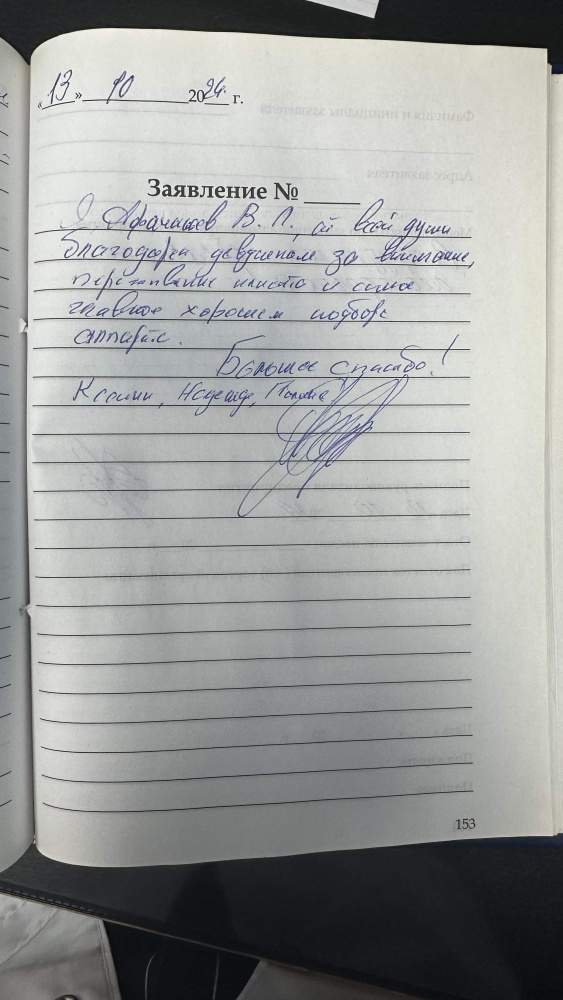 «13» 10 2024 г.
Заявление №
Я В. П., от всей души
благодарю девушкам за внимание,
и самое
главное хорошем подборе
аппарата.
Большее спасибо!
Ксении, Надежде, Полине
153